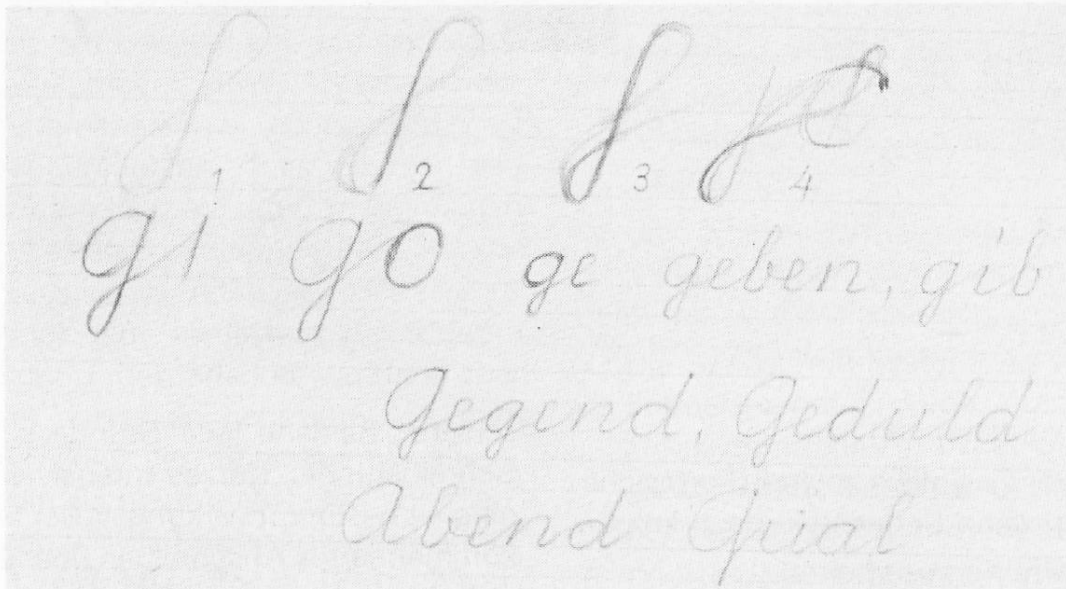 1 2 3 4
gi go ge geben, gib
Gegend, Geduld
Abend Qual